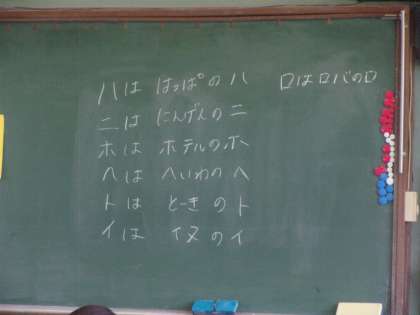 ハは はっぱの ハ
ニは にんげんの ニ
ホは ホテルの ホ
ヘは へいわの ヘ
トは とーきの ト
イは イヌの イ
ロは ロバの ロ